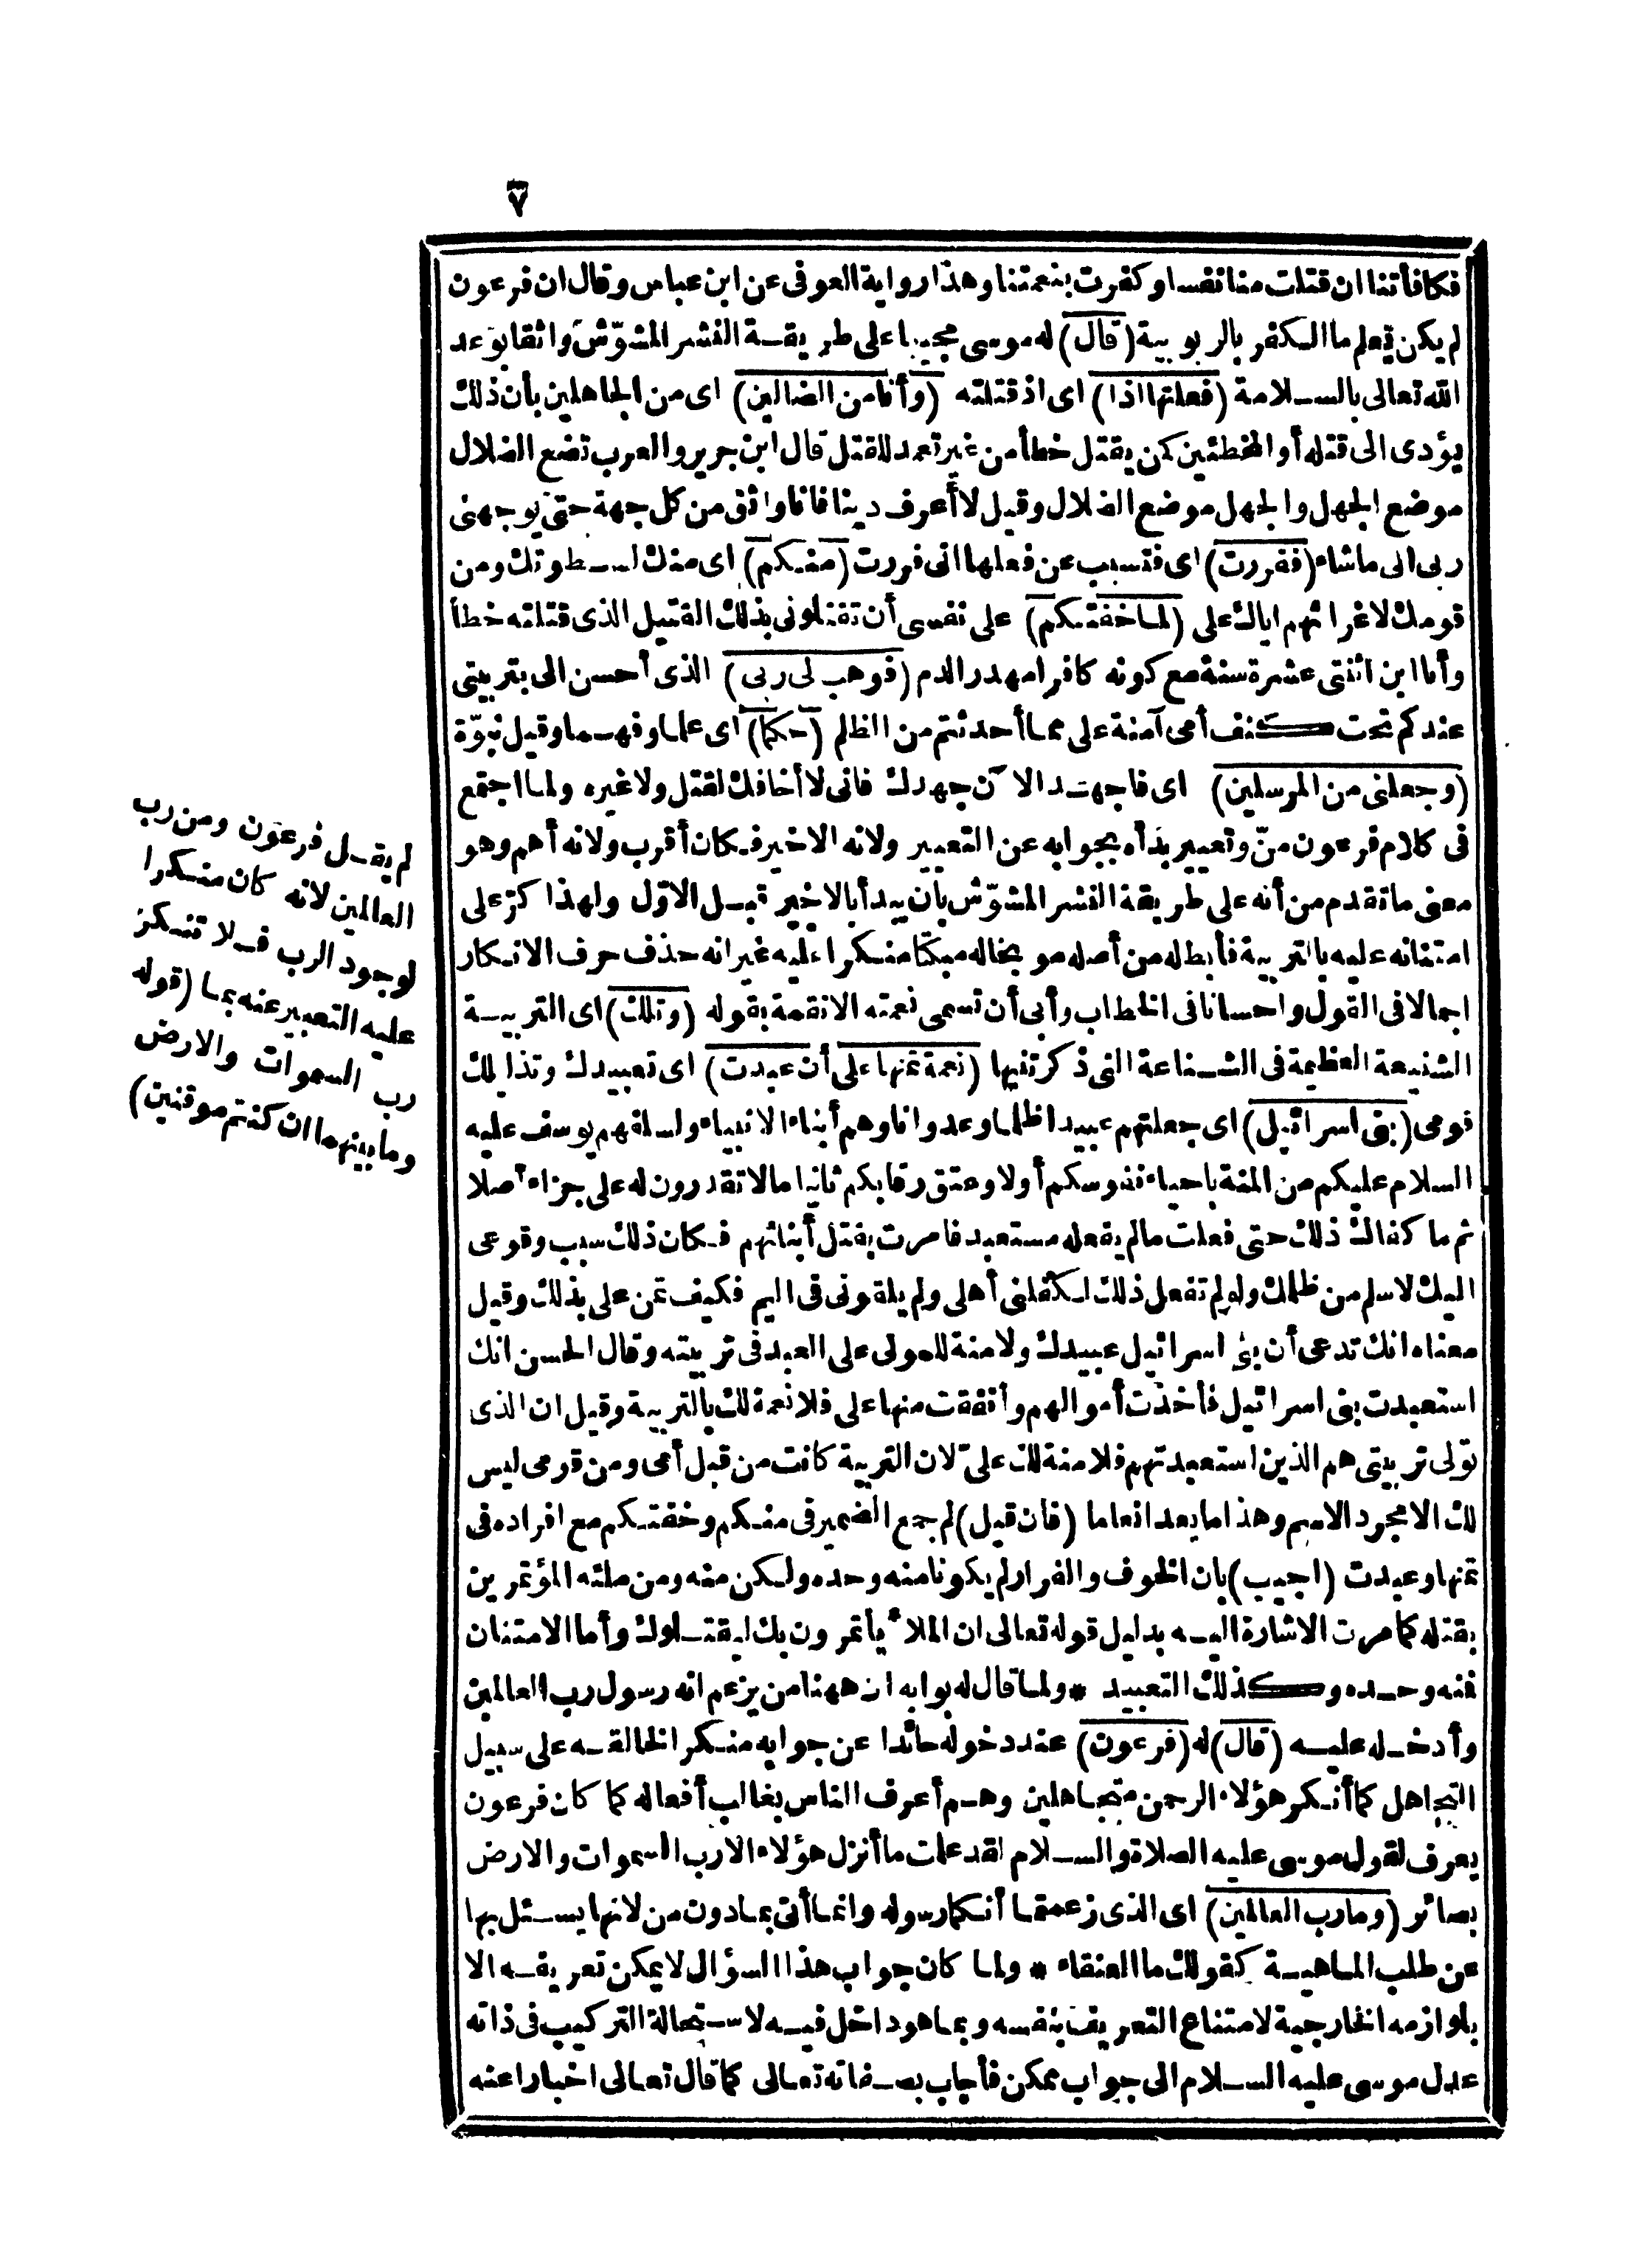 ٧
فكافأتنا ان قتلت منا نفسا وكفرت بنعمتنا وهذا رواية العوفى عن ابن عباس وقال ان فرعون
لم يكن يعلم ما الكفر بالربوبية (قال) له موسى مجيبا على طريقة النشر المشوّش واثقا بوعد
الله تعالى بالسلامة (فعلتها اذا) اى اذ قتلته (وأنا من الضالين) اى من الجاهلين بأن ذلك
يؤدى الى قتله أو المخطئين كمن يقتل خطأ من غير تعمد للقتل قال ابن جرير والعرب تضع الضلال
موضع الجهل والجهل موضع الضلال وقيل لا أعرف دينا فانا واثق من كل جهة حتى يوجهنى
ربى الى ما شاء (ففررت) اى فتسبب عن فعلها انى فررت (منكم) اى منك لسطوتك ومن
قومك لاغرائهم اياك على (لما خفتكم) على نفسى أن تقتلونى بذلك القتيل الذى قتلته خطأ
وأنا ابن اثنتى عشرة سنة مع كونه كافرا مهدر الدم (فوهب لى ربى) الذى أحسن الى بتربيتى
عندكم تحت كنف أمى آمنة على مما أحدثتم من الظلم (حكما) اى علما وفهما وقيل نبوّة
(وجعلنى من المرسلين) اى فاجهد الآن جهدك فانى لا أخافك لقتل ولا غيره ولما اجتمع
فى كلام فرعون منّ وتعيير بدأ بجوابه عن التعيير ولانه الاخير فكان أقرب ولانه أهم وهو
معنى ما تقدم من أنه على طريقة النشر المشوّش بأن يبدأ بالاخير قبل الاوّل ولهذا كرّ على
امتنانه عليه بالتربية فأبطله من أصله موبخا له مبكتا منكرا عليه غير انه حذف حرف الانكار
اجمالا فى القول واحسانا فى الخطاب وأبى أن تسمى نعمته الا نقمة بقوله (وتلك) اى التربية
الشنيعة العظيمة فى الشناعة التى ذكرتنيها (نعمة تمنها على أن عبدت) اى تعبيدك وتذليلك
قومى (بنى اسرائيل) اى جعلتهم عبيدا ظلما وعدوانا وهم أبناء الانبياء ولسلفهم يوسف عليه
السلام عليكم من المنة باحياء نفوسكم أولا وعتق رقابكم ثانيا ما لا تقدرون له على جزاء أصلا
ثم ما كفاك ذلك حتى فعلت ما لم يفعله مستعبد فامرت بقتل أبنائهم فكان ذلك سبب وقوعى
اليك لاسلم من ظلمك ولو لم تفعل ذلك لكفلنى أهلى ولم يلقونى فى اليم فكيف تمن على بذلك وقيل
معناه انك تدعى أن بنى اسرائيل عبيدك ولا منة للمولى على العبد فى تربيته وقال الحسن انك
استعبدت بنى اسرائيل فأخذت أموالهم وأنفقت منها على فلا نعمة لك بالتربية وقيل ان الذى
تولى تربيتى هم الذين استعبدتهم فلا منة لك علىّ لان التربية كانت من قبل أمى ومن قومى ليس
لك الا مجرد الاسم وهذا ما يعد انعاما (فان قيل) لم جمع الضمير فى منكم وخفتكم مع افراده فى
تمنها وعبدت (اجيب) بان الخوف والفرار لم يكونا منه وحده ولكن منه ومن ملئه المؤتمرين
بقتله كما مرت الاشارة اليه بدليل قوله تعالى ان الملأ يأتمرون بك ليقتلوك وأما الامتنان
فمنه وحده وكذلك التعبيد * ولما قال له بوابه ان ههنا من يزعم انه رسول رب العالمين
وأدخله عليه (قال) له (فرعون) عند دخوله حائدا عن جوابه منكرا لخالقه على سبيل
التجاهل كما أنكر هؤلاء الرحمن متجاهلين وهم أعرف الناس بغالب أفعاله كما كان فرعون
يعرف لقول موسى عليه الصلاة والسلام لقد علمت ما أنزل هؤلاء الا رب السموات والارض
بصائر (وما رب العالمين) اى الذى زعمتما أنكما رسوله وانما أتى بما دون من لانها يسئل بها
عن طلب الماهية كقولك ما العنقاء * ولما كان جواب هذا السؤال لا يمكن تعريفه الا
بلوازمه الخارجية لامتناع التعريف بنفسه وبما هو داخل فيه لاستحالة التركيب فى ذاته
عدل موسى عليه السلام الى جواب ممكن فأجاب بصفاته تعالى كما قال تعالى اخبارا عنه
لم يقل فرعون ومن رب
العالمين لانه كان منكرا
لوجود الرب فلا تنكر
عليه التعبير عنه بما (قوله
رب السموات والارض
وما بينهما ان كنتم موقنين)